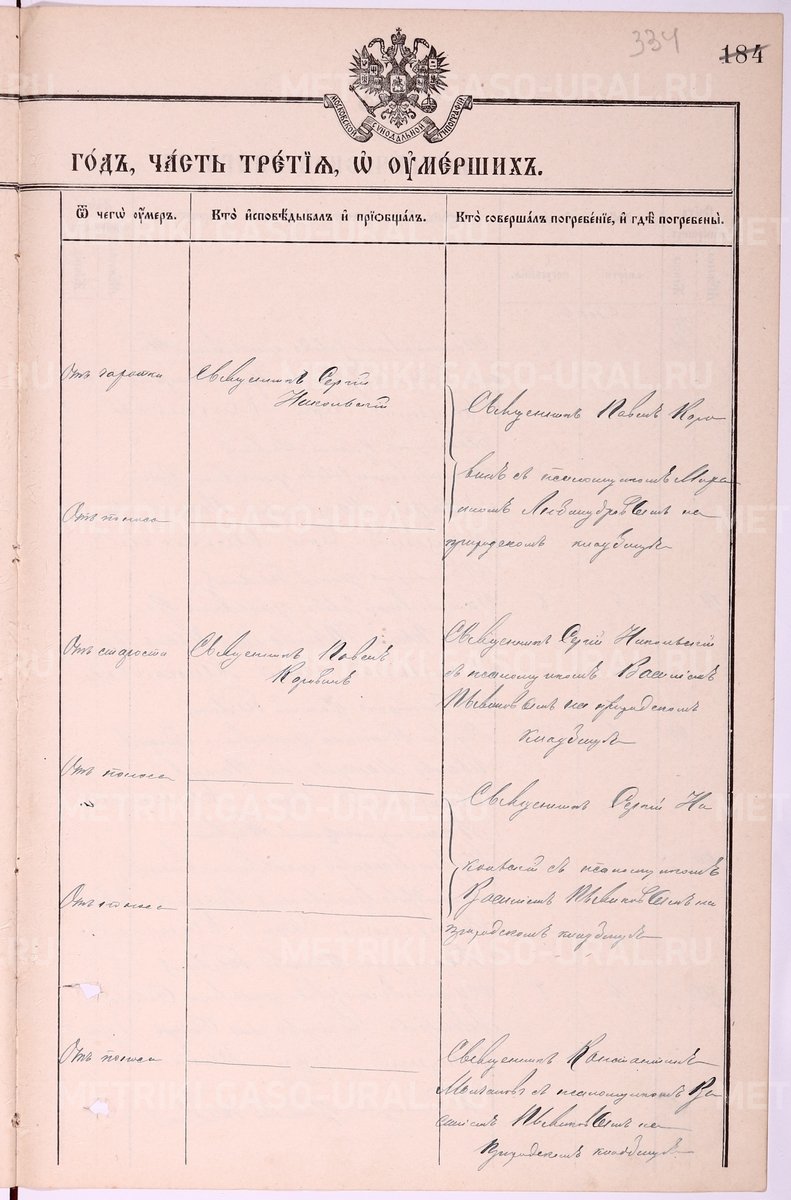 334
184
МОСКОВСКОЙ СѴНОДАЛЬНОЙ ТИПОГРАФІИ
ГО́ДЪ, ЧА́СТЬ ТРЕ́ТІѦ, Ѡ҆ ОУ҆МЕ́РШИХЪ.
Ѿ чегѡ̀ оу҆́меръ.
Кто̀ и҆сповѣ́дывалъ и҆ прїѡбща́лъ.
Кто̀ соверша́лъ погребе́нїе, и҆ гдѣ̀ погребены̀.
Отъ горячки
Священникъ Сергій
Никольскій
Священникъ Павелъ Коро
винъ съ псаломщикомъ
на
городскомъ кладбищѣ
Отъ поноса
Отъ старости
Священникъ Павелъ
Коровинъ
Священникъ Сергій Никольскій
съ псаломщикомъ Василіемъ
на городскомъ
кладбищѣ
Отъ поноса
Священникъ Сергій Ни
кольскій съ псаломщикомъ
Василіемъ на
городскомъ кладбищѣ
Отъ поноса
Отъ поноса
Священникъ Константинъ
съ псаломщикомъ Ва
силіемъ на
городскомъ кладбищѣ
METRIKI.GASO-URAL.RU